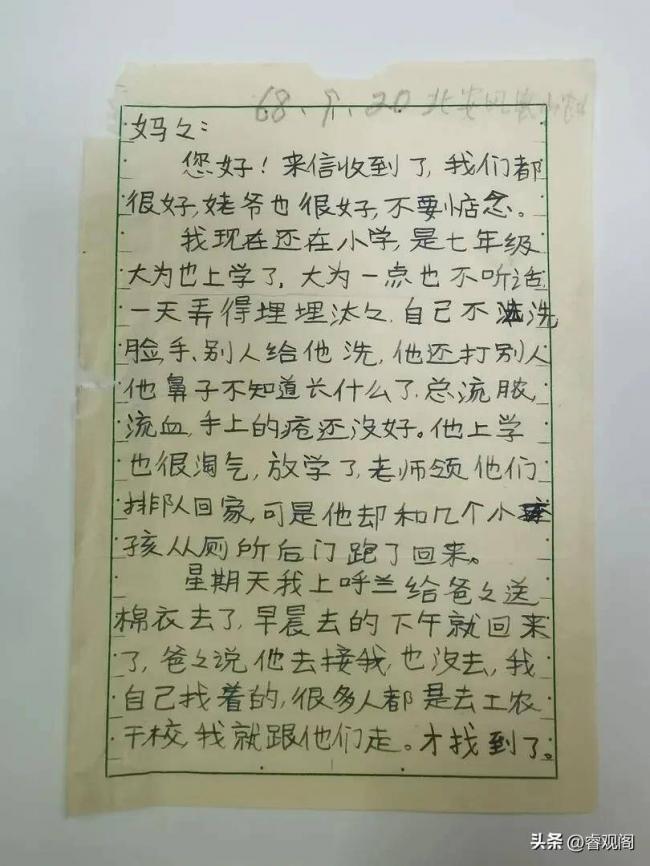 68.9.20 北安
妈々：
您好！来信收到了，我们都
很好，姥爷也很好，不要惦念。
我现在还在小学，是七年级
大为也上学了，大为一点也不听话
一天弄得埋埋汰々．自己不洗
脸，手、别人给他洗，他还打别人
他鼻子不知道长什么了．总流脓，
流血，手上的疮还没好。他上学
也很淘气，放学了，老师领他们
排队回家，可是他却和几个小
孩从厕所后门跑了回来。
星期天我上呼兰给爸々送
棉衣去了，早晨去的下午就回来
了，爸々说他去接我，也没去，我
自己找着的，很多人都是去工农
干校，我就跟他们走。才找到了。
头条 @睿观阁